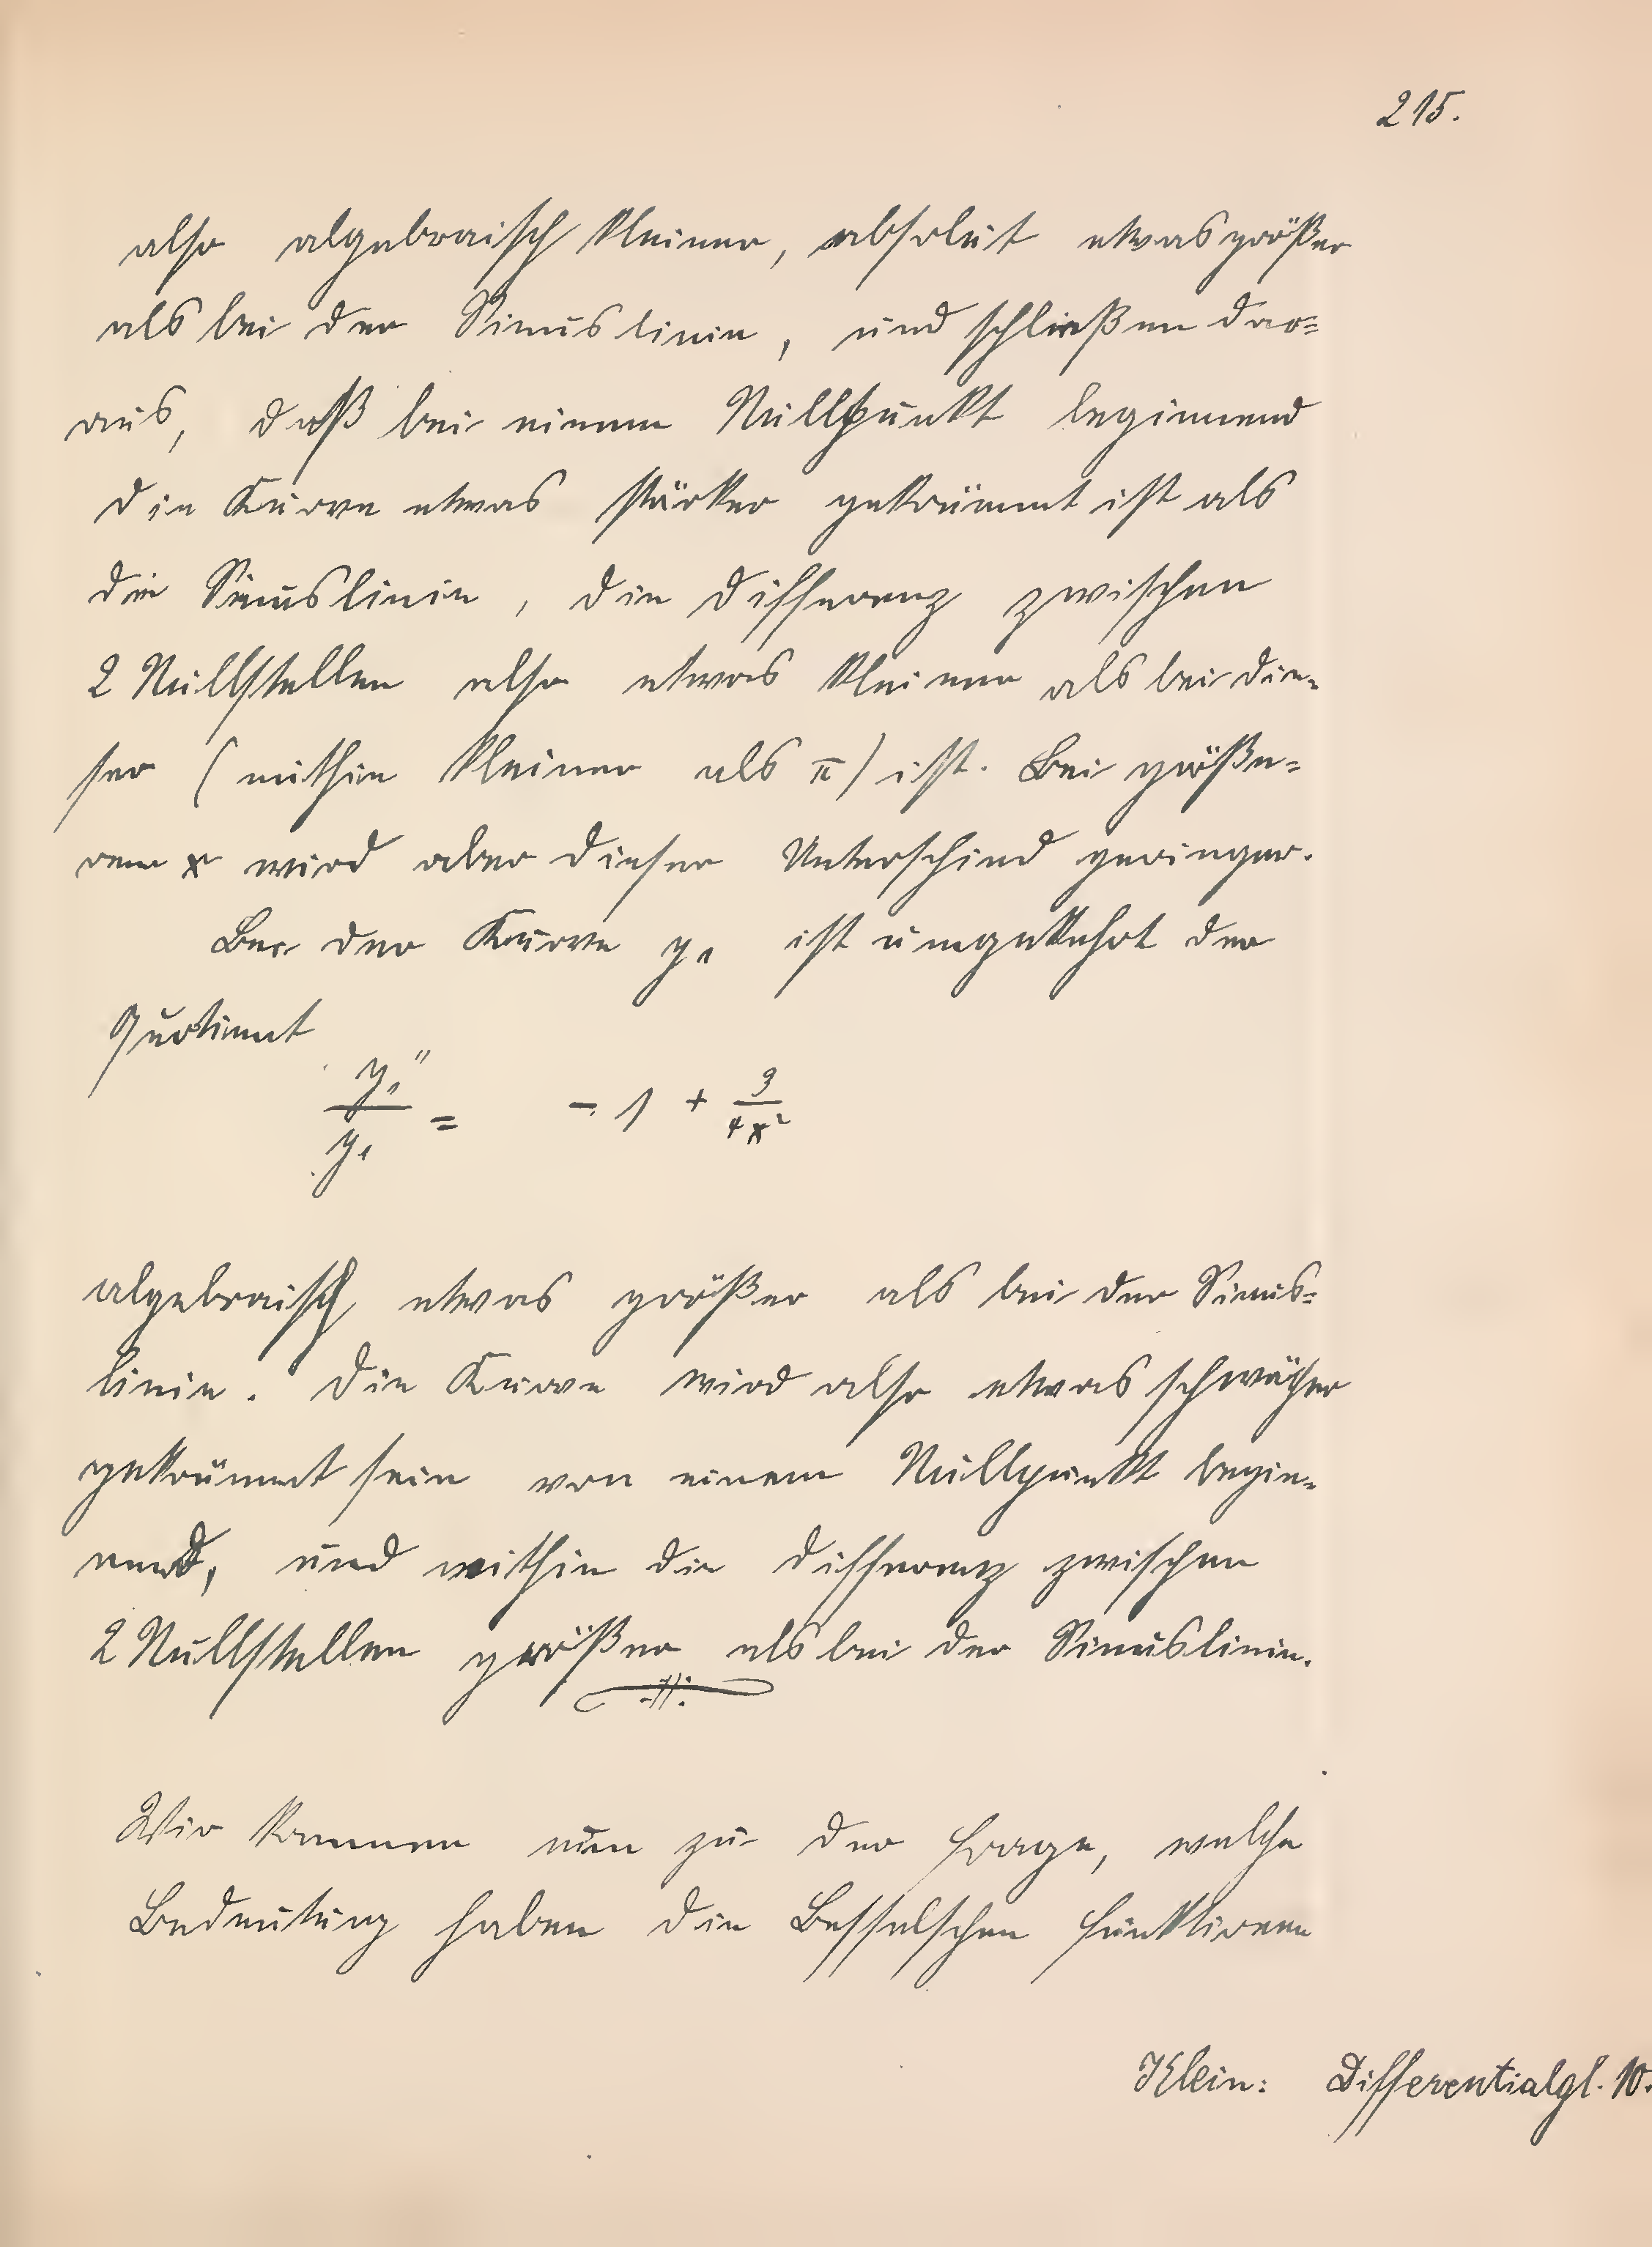 215.
also algebraisch kleiner, absolut etwas größer
als bei der Sinuslinie, und schließen dar=
aus, daß bei einem Nullpunkt beginnend
die Kurve etwas stärker gekrümmt ist als
die Sinuslinie, die Differenz zwischen
2 Nullstellen also etwas kleiner als bei die=
ser (mithin kleiner als π) ist. Bei größe=
rem x wird aber dieser Unterschied geringer.
Bei der Kurve y₁ ist umgekehrt der
Quotient
y₁''/y₁ = - 1 + 3/4x²
algebraisch etwas größer als bei der Sinus=
linie. Die Kurve wird also etwas schwächer
gekrümmt sein von einem Nullpunkt begin=
nend, und mithin die Differenz zwischen
2 Nullstellen größer als bei der Sinuslinie.
Wir kommen nun zu der Frage, welche
Bedeutung haben die Besselschen Funktionen
Klein: Differentialgl. 10.